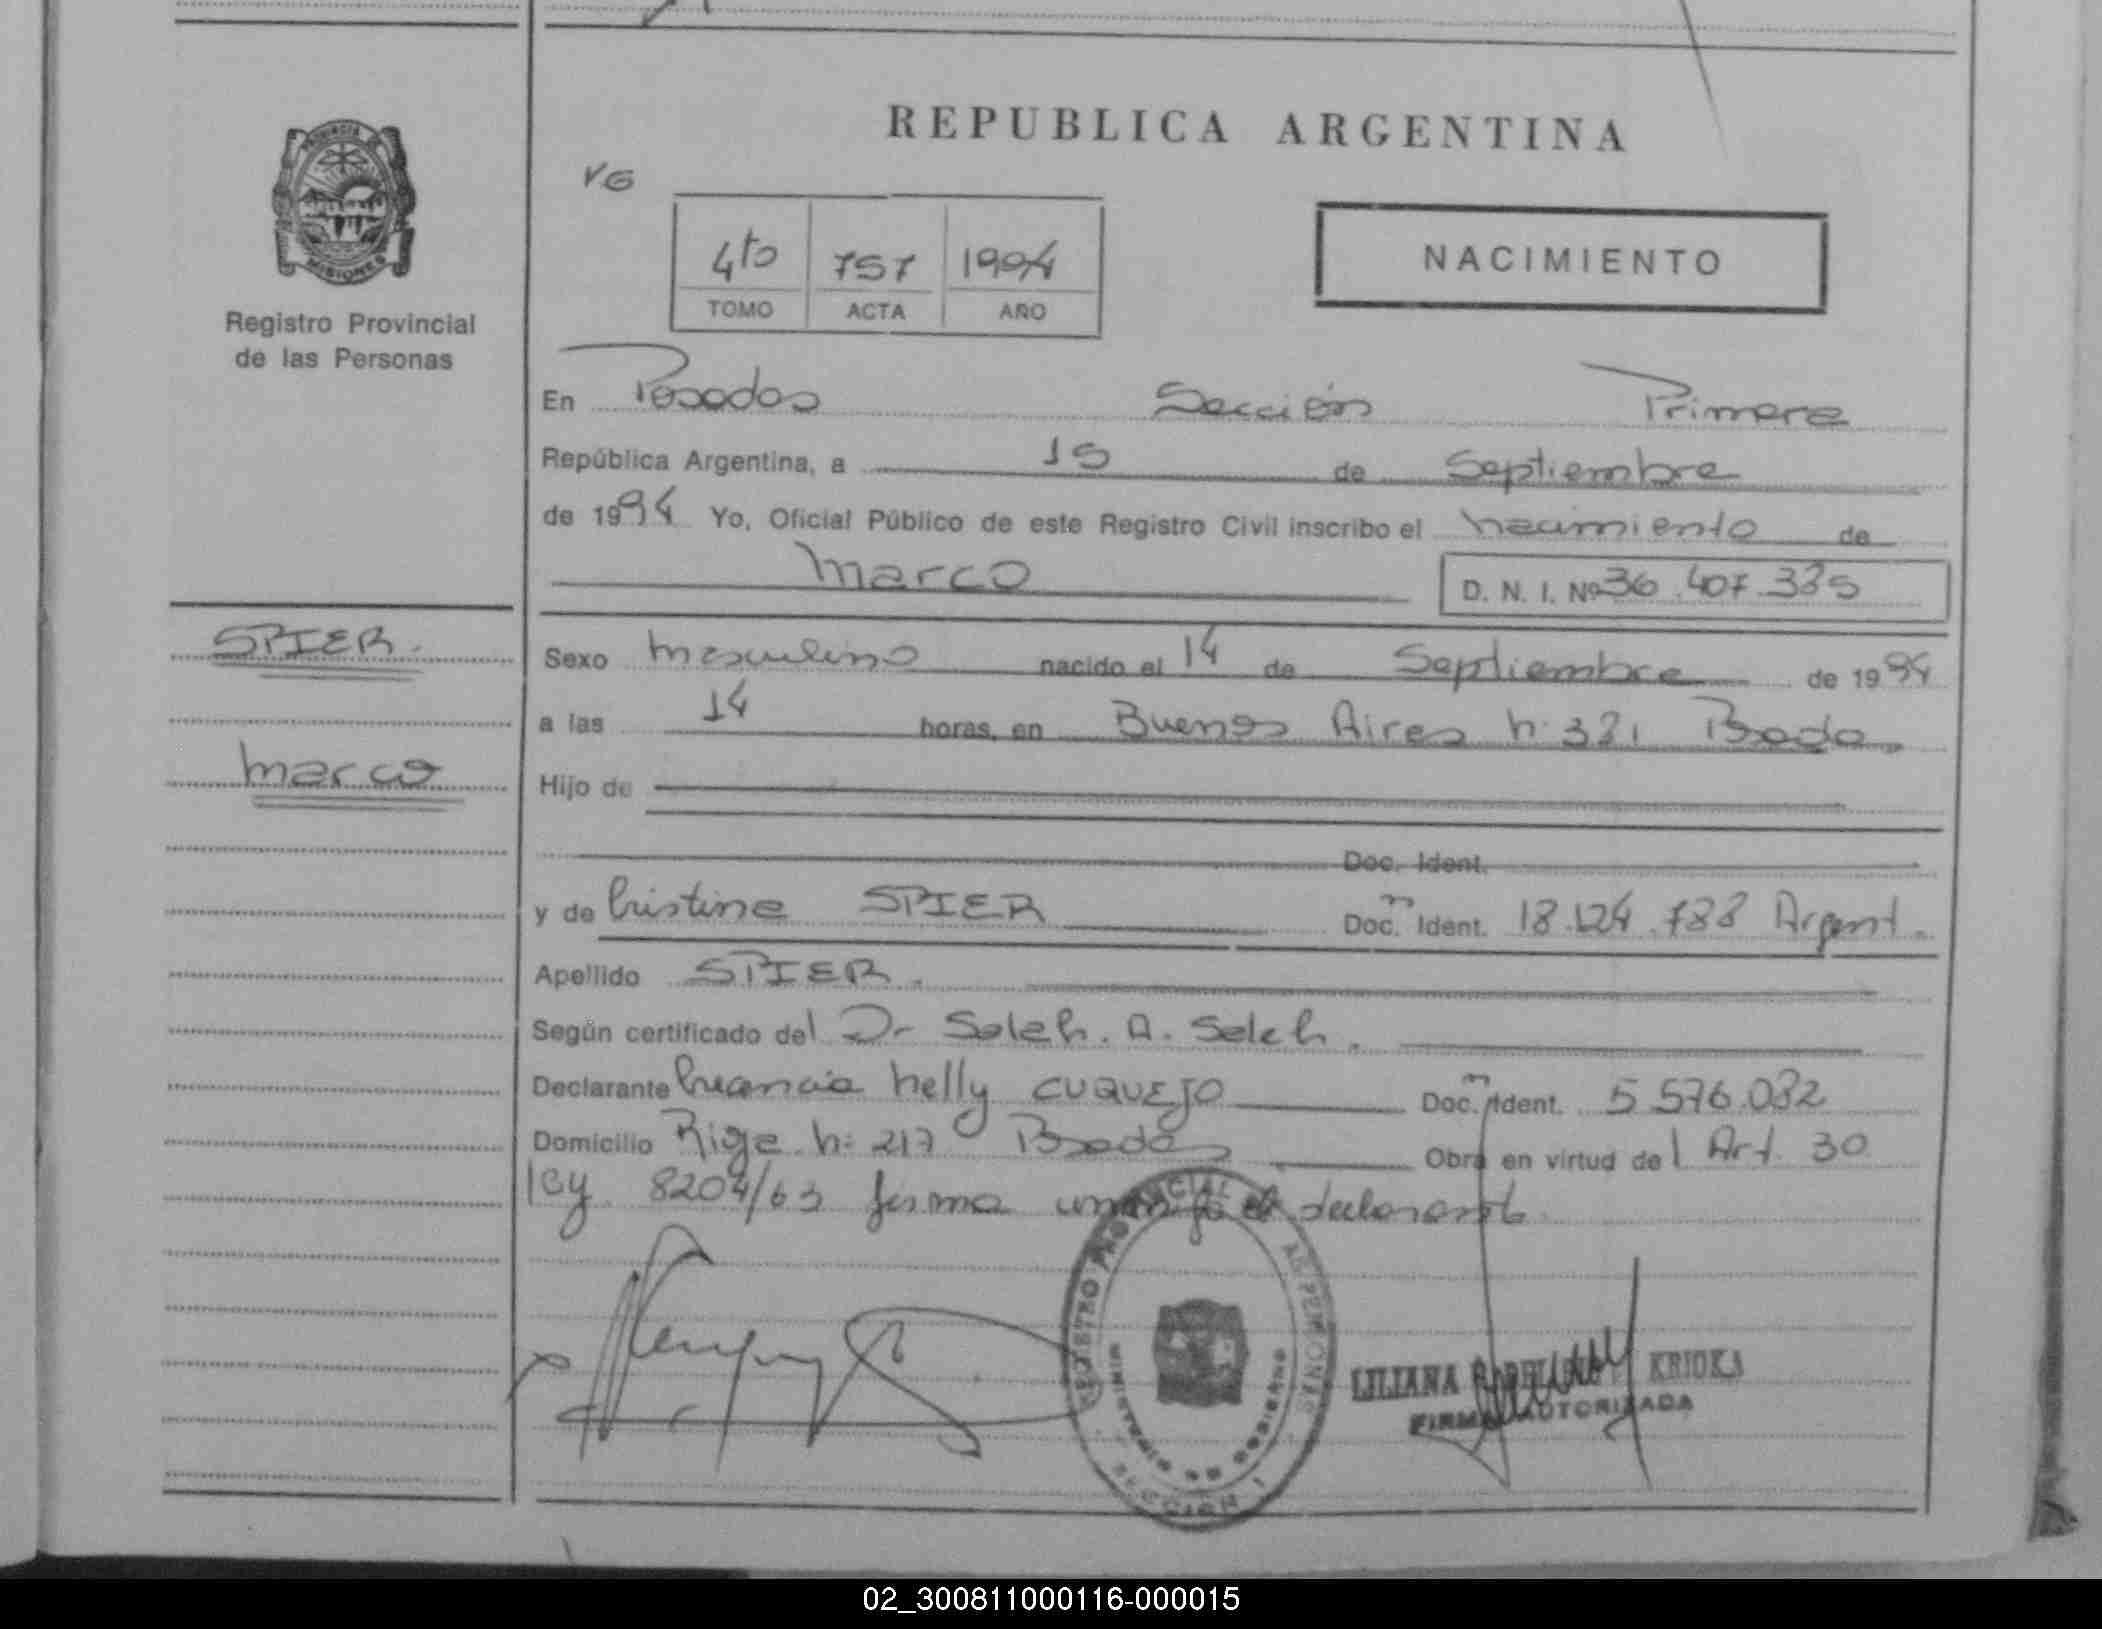 REPUBLICA ARGENTINA
PROVINCIA DE
MISIONES
Registro Provincial
de las Personas
VG
4to 757 1994
TOMO ACTA AÑO
NACIMIENTO
En Posadas Sección Primera
República Argentina, a 15 de Septiembre
de 1994 Yo, Oficial Público de este Registro Civil inscribo el nacimiento de
Marco D. N. I. Nº 36.407.335
SPIER.
Marco
Sexo masculino nacido el 14 de Septiembre de 1994
a las 14 horas, en Buenos Aires n: 321 Posadas
Hijo de
Doc. Ident.
y de Cristina SPIER Doc. Ident. 18.124.788 Argent.
Apellido SPIER.
Según certificado del Dr Saleh. A. Saleh.
Declarante Nelly CUQUEJO Doc. Ident. 5.576.082
Domicilio Rioja n: 217 Posadas Obra en virtud del Art. 30
ley 8204/63 firma conmigo el declarante
REGISTRO PROVINCIAL PERSONAS
MINISTERIO DE GOBIERNO
SECCION I
LILIANA KRIOKA
FIRMA AUTORIZADA
02_300811000116-000015